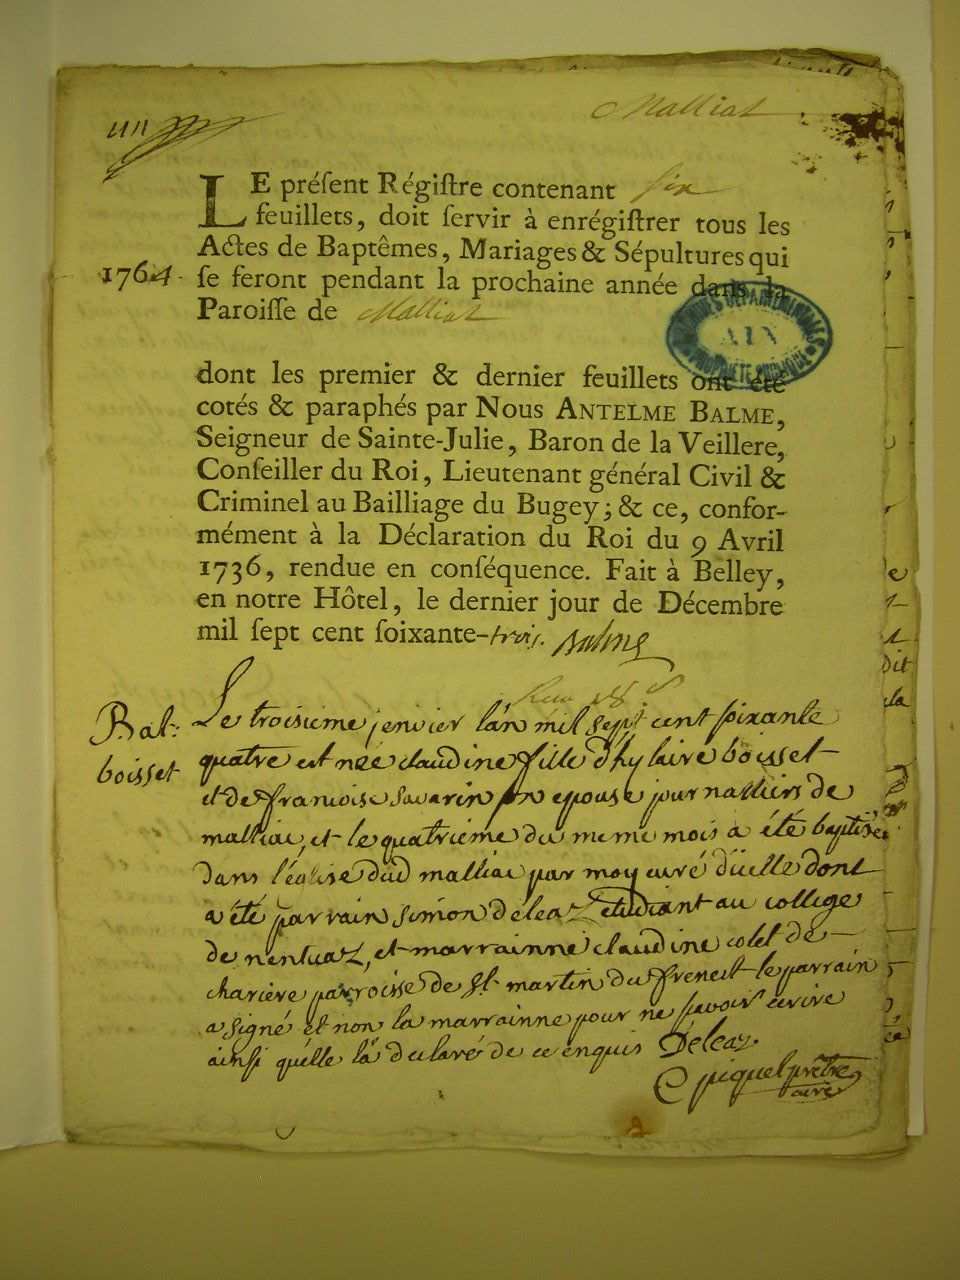 Malliat
LE préſent Régiſtre contenant six
feuillets, doit ſervir à enrégiſtrer tous les
Actes de Baptêmes, Mariages & Sépultures qui
1764 ſe feront pendant la prochaine année dans la
Paroiſſe de Malliat
ARCHIVES DÉPARTEMENTALES
AIN
PROPRIÉTÉ PUBLIQUE
dont les premier & dernier feuillets ont été
cotés & paraphés par Nous ANTELME BALME,
Seigneur de Sainte-Julie, Baron de la Veillere,
Conſeiller du Roi, Lieutenant général Civil &
Criminel au Bailliage du Bugey; & ce, confor-
mément à la Déclaration du Roi du 9 Avril
1736, rendue en conſéquence. Fait à Belley,
en notre Hôtel, le dernier jour de Décembre
mil ſept cent ſoixante-trois. Balme
Bat: Le troisieme jenvier l'an mil sept cent soixante
boisset quatre est née claudine fille d'hylaire boisset
et de francoise savarin son epouse journaliers de
malliac, et le quatrieme du meme mois a été baptisée
dans l'église dud malliac par moy curé d'icelle dont
a été parrain simon déléaz etudiant au college
de nentuaz, et marrainne claudine colet de
charière parroisse de st martin du frenest le parrain
a signé et non la marrainne pour ne savoir écrire
ainsi qu'elle la declaré de ce enquis Déléaz.
C piquet prêtre
curé